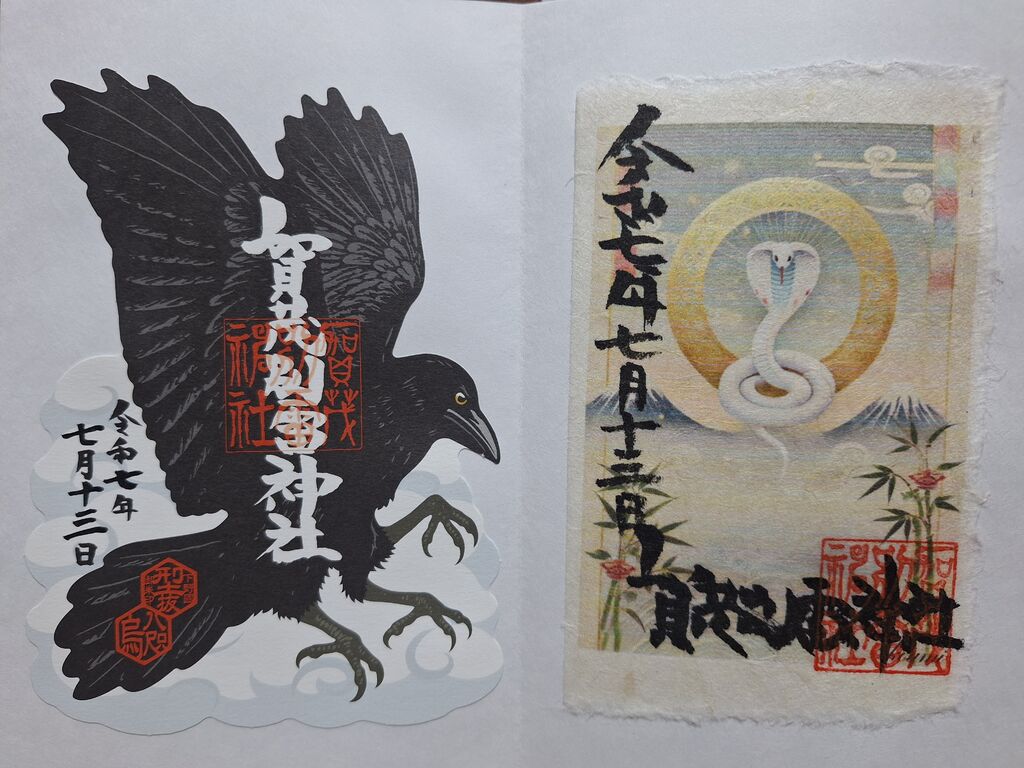 賀茂別雷神社
賀茂
別雷
神社
令和七年
七月十三日
型抜
八咫
烏
令和七年七月十三日
賀茂別雷神社